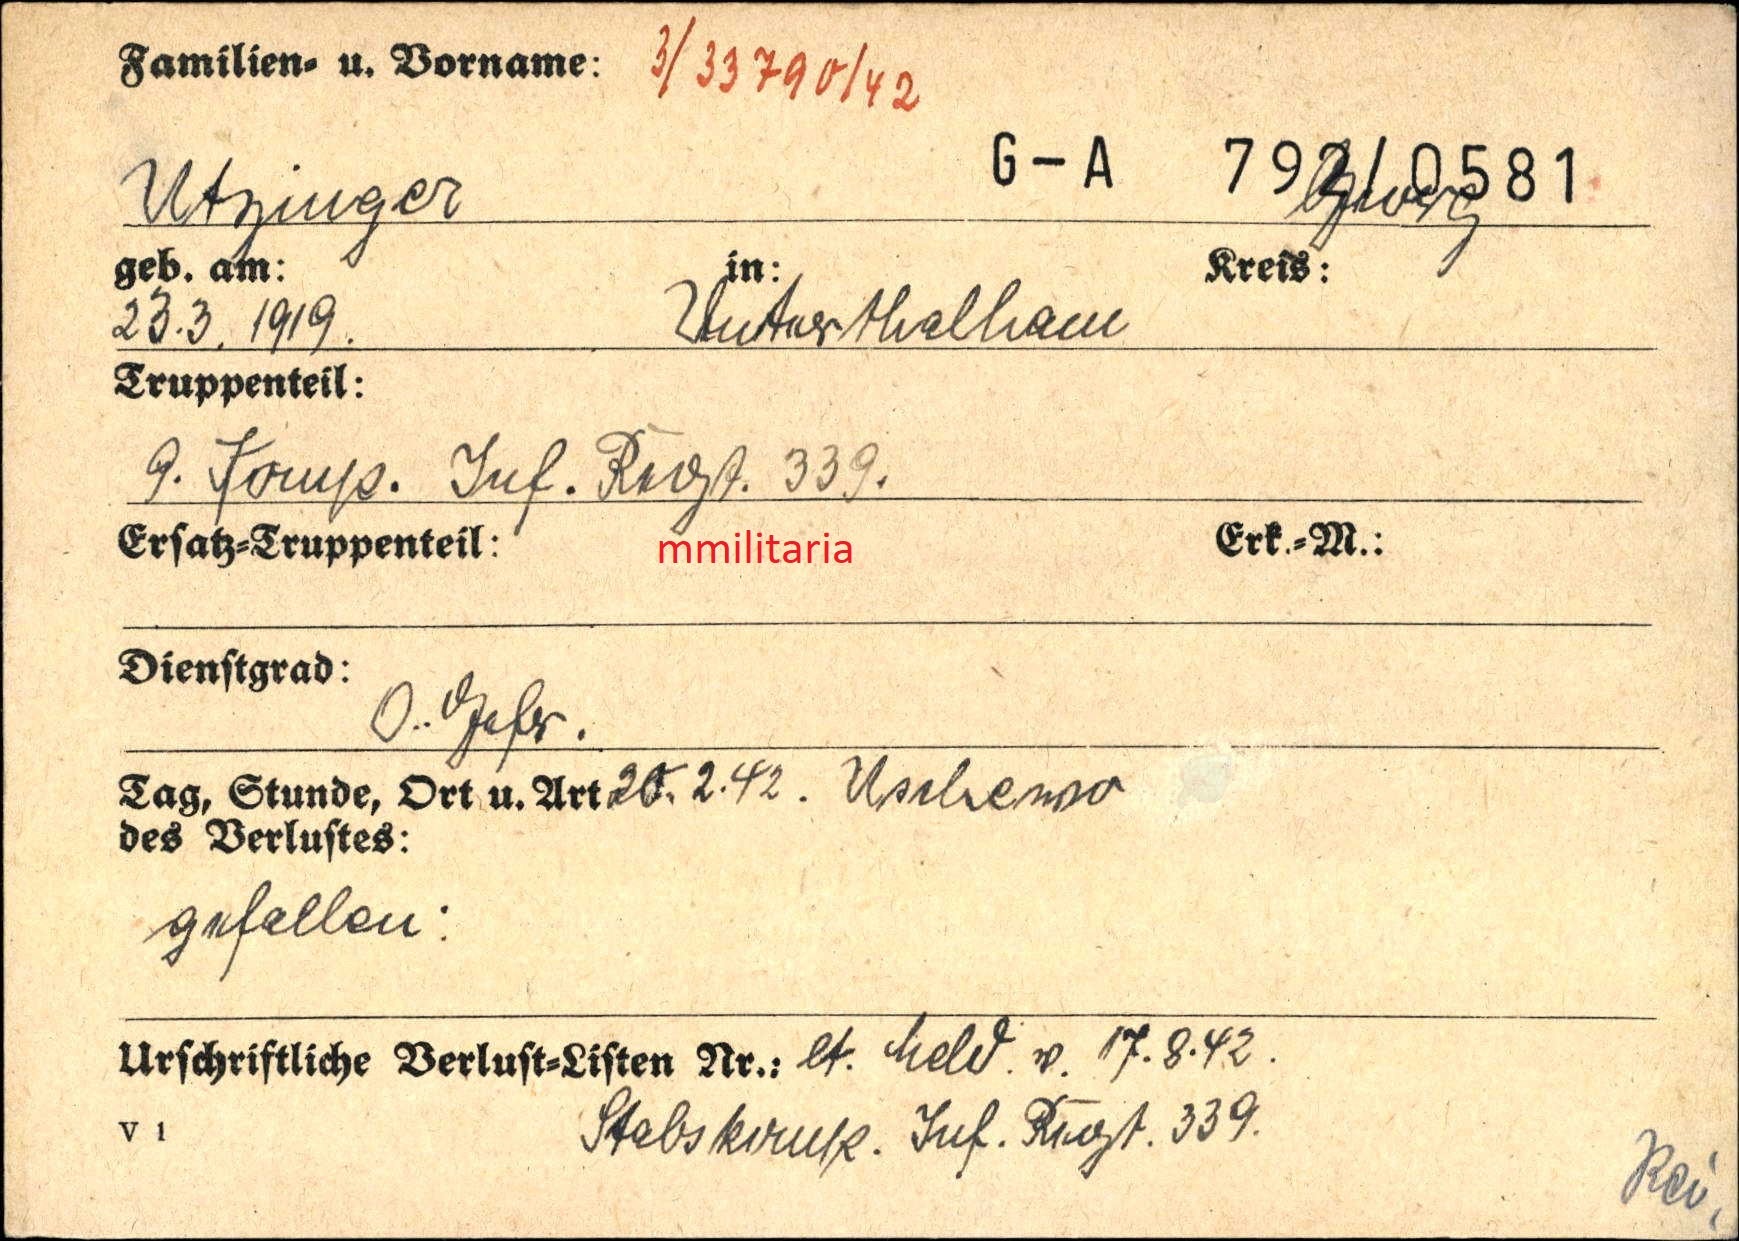 Familien- u. Vorname: 3/33790/42
G-A 792/0581
Utzinger Georg
geb. am: in: Kreis:
23.3.1919. Unterthalham
Truppenteil:
9. Komp. Inf. Regt. 339.
Ersatz-Truppenteil: mmilitaria Erk.-M.:
Dienstgrad:
O. Gefr.
Tag, Stunde, Ort u. Art 20.2.42. Uschewo
des Verlustes:
gefallen:
Urschriftliche Verlust-Listen Nr.: lt. Meld. v. 17.8.42.
V 1 Stabskomp. Inf. Regt. 339.